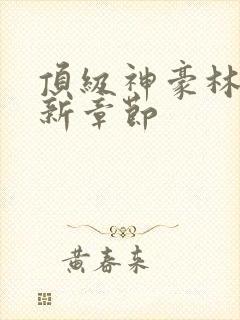 頂級神豪林
新章節
黃春來